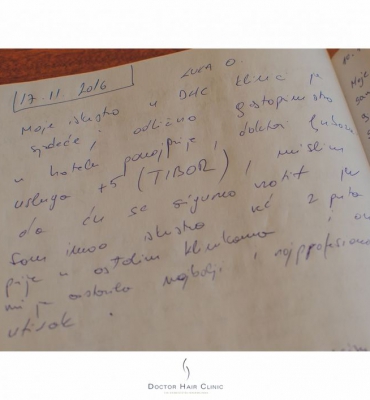 17.11.2016
LUKA O.
Moje iskustvo u DHC klinici je
sjedeće: odlično gostoprimstvo
u hotelu, doktori ljubazni
usluga +5 (TIBOR), mislim
da ću se sigurno vratit jer
sam imao iskustvo već 2 puta
prije u ostalim klinikama i ova
mi je ostavila najbolji i najprofesiona
utisak.
DOCTOR HAIR CLINIC